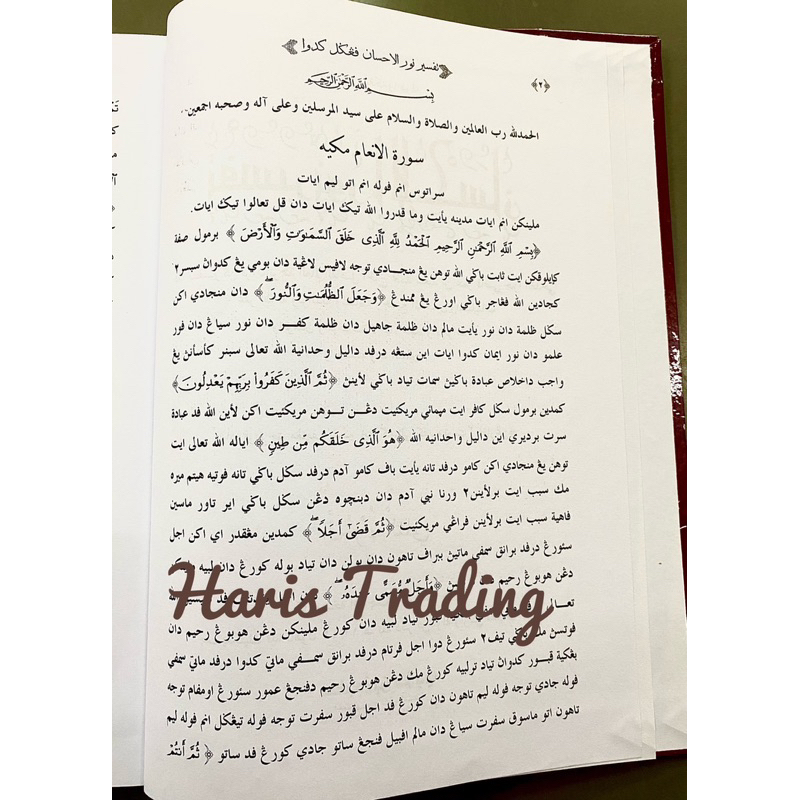 تفسير نور الاحسان فڠݢل كدوا
﴿٢﴾
بسم الله الرحمن الرحيم
الحمدلله رب العالمين والصلاة والسلام على سيد المرسلين وعلى آله وصحبه اجمعين.
سورة الانعام مكيه
سراتوس انم فوله انم اتو ليم ايات
ملينكن انم ايات مدينه يأيت وما قدروا الله تيݢ ايات دان قل تعالوا تيݢ ايات.
﴿بِسْمِ اللَّهِ الرَّحْمَٰنِ الرَّحِيمِ الْحَمْدُ لِلَّهِ الَّذِي خَلَقَ السَّمَٰوَٰتِ وَالْأَرْضَ﴾ برمول صفة
كايلوقكن ايت ثابت باݢي الله توهن يڠ منجادي توجه لافيس لاڠية دان بومي يڠ كدوان سبسر٢
كجادين الله فڠاجر باݢي اورڠ يڠ ممندڠ ﴿وَجَعَلَ الظُّلُمَٰتِ وَالنُّورَ﴾ دان منجادي اكن
سكل ظلمة دان نور يأيت مالم دان ظلمة جاهيل دان ظلمة كفر دان نور سياڠ دان فور
علمو دان نور ايمان كدوا ايات اين ستڠه درفد داليل وحدانية الله تعالى سبنر كأسانڽ يڠ
واجب داخلاص عبادة باݢيڽ سمات تياد باݢي لاينڽ ﴿ثُمَّ الَّذِينَ كَفَرُوا بِرَبِّهِمْ يَعْدِلُونَ﴾
كمدين برمول سكل كافر ايت مهمائي مريكئيت دڠن توهن مريكئيت اكن لأين الله فد عبادة
سرت برديري اين داليل واحدانيه الله ﴿هُوَ الَّذِي خَلَقَكُم مِّن طِينٍ﴾ اياله الله تعالى ايت
توهن يڠ منجادي اكن كامو درفد تانه يأيت باف كامو آدم درفد سكل باݢي تانه فوتيه هيتم ميره
مك سبب ايت برلأينن٢ ورنا نبي آدم دان دبنچوه دڠن سكل باݢي اير تاور ماسين
فاهية سبب ايت برلأينن فراڠي مريكئيت ﴿ثُمَّ قَضَىٰ أَجَلًا﴾ كمدين مڠقدر اي اكن اجل
سئورڠ درفد برانق سمفي ماتيڽ ببراف تاهون دان بولن دان تياد بوله كورڠ دان لبيه
دڠن هوبوڠ رحيم ﴿وَأَجَلٌ مُّسَمًّى عِندَهُ﴾
Haris Trading
تعالى قبور تياد لبيه دان كورڠ ملينكن دڠن هوبوڠ رحيم دان
فوتسڽ تيف٢ سئورڠ دوا اجل فرتام درفد برانق سمفي ماتي كدوا درفد ماتي سمفي
بڠكية قبور كدوان تياد ترلبيه كورڠ مك دڠن هوبوڠ رحيم دفنجڠ عمور سئورڠ اومفام توجه
فوله جادي توجه فوله ليم تاهون دان كورڠ فد اجل قبور سفرت توجه فوله تيڠݢل انم فوله ليم
تاهون اتو ماسوق سفرت سياڠ دان مالم افبيل فنجڠ ساتو جادي كورڠ فد ساتو ﴿ثُمَّ أَنتُمْ